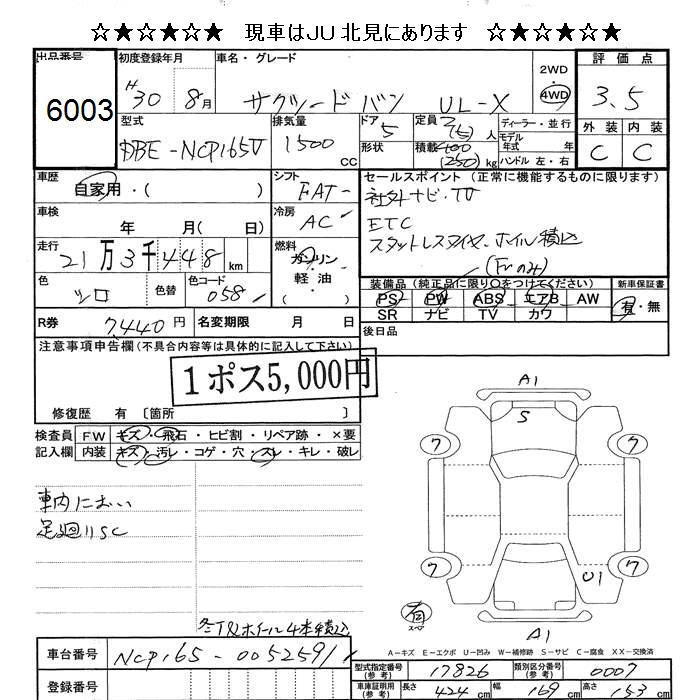 ☆★☆★☆★ 現車はJU北見にあります ☆★☆★☆★
出品番号 6003
初度登録年月 H30 8月
車名・グレード サクシードバン UL-X
2WD 4WD
評価点 3.5
外装 C 内装 C
型式 DBE-NCP165V
排気量 1500 CC
ドア 5
形状
定員 2(5)人
積載 400(250)kg
ディーラー・並行
モデル年式 年
ハンドル 左・右
車歴 自家用・( )
シフト FAT
車検 年 月(日)
冷房 AC
走行 21万3千448km
燃料 ガソリン・軽油
色 シロ 色替
色コード 058
R券 7,440円
名変期限 月 日
セールスポイント(正常に機能するものに限ります)
社外ナビ・TV
ETC
スタットレスタイヤ・ホイル積込
(Frのみ)
装備品(純正品に限り○をつけてください)
PS PW ABS エアB AW
SR ナビ TV カワ
新車保証書 有・無
後日品
注意事項申告欄(不具合内容等は具体的に記入して下さい)
1ポス5,000円
修復歴 有〔箇所 〕
検査員記入欄
FW キズ・飛石・ヒビ割・リペア跡・×要
内装 キズ・汚レ・コゲ・穴・スレ・キレ・破レ
車内におい
足廻りSC
冬T&ホイール4本積込
A1
S
7 7
7 7
U1
有 スペア
A1
A-キズ E-エクボ U-凹み W-補修跡 S-サビ C-腐食 XX-交換済
車台番号 NCP165-0052591
登録番号
型式指定番号(参考) 17826
類別区分番号(参考) 0007
車庫証明用(参考) 長さ 424cm 幅 169cm 高さ 153cm